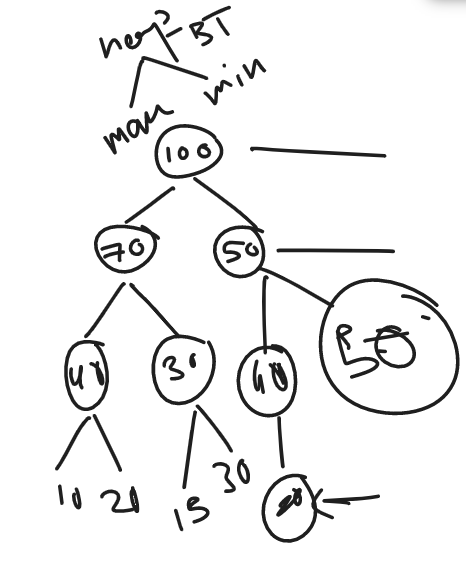 heap - BT
max min
100
70 50
40 30 40 50
10 20 15 30